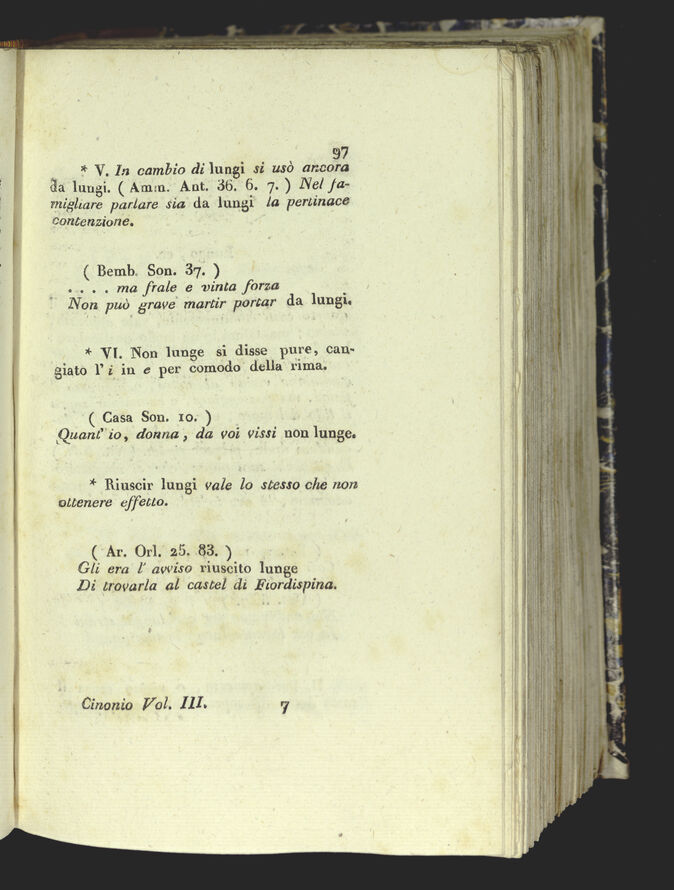 97
* V. In cambio di lungi si usò ancora
da lungi. ( Amm. Ant. 36. 6. 7. ) Nel fa-
migliare parlare sia da lungi la pertinace
contenzione.
( Bemb. Son. 37. )
. . . . ma frale e vinta forza
Non può grave martir portar da lungi.
* VI. Non lunge si disse pure, can-
giato l' i in e per comodo della rima.
( Casa Son. 10. )
Quant' io, donna, da voi vissi non lunge.
* Riuscir lungi vale lo stesso che non
ottenere effetto.
( Ar. Orl. 25. 83. )
Gli era l' avviso riuscito lunge
Di trovarla al castel di Fiordispina.
Cinonio Vol. III. 7